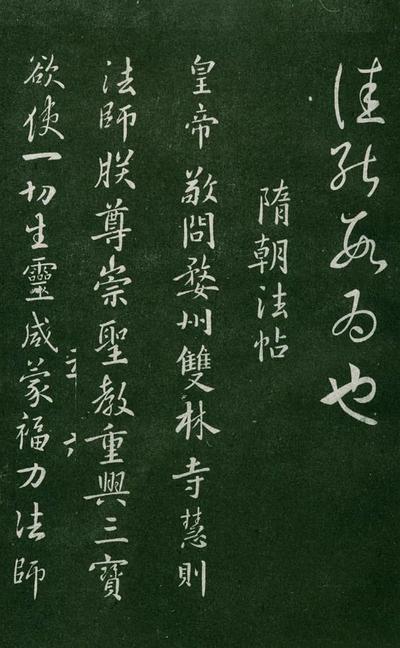 佳能數為也
隋朝法帖
皇帝敬問婺州雙林寺慧則
法師朕尊崇聖教重興三寶
欲使一切生靈咸蒙福力法師